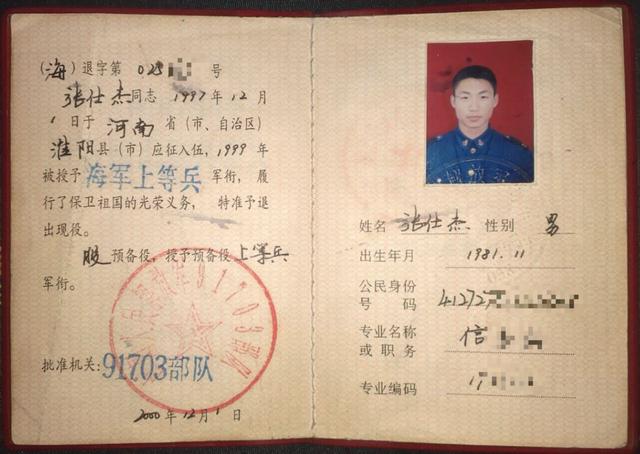 （海）退字第 025 号
张仕杰同志 1997年12月
1日于 河南 省（市、自治区）
淮阳县（市）应征入伍，1999年
被授予 海军上等兵 军衔，履
行了保卫祖国的光荣义务，特准予退
出现役。
服预备役，授予预备役上等兵
军衔。
批准机关：91703部队
2000年12月1日
91703部队
姓名 张仕杰 性别 男
出生年月 1981.11
公民身份
号码 41272
专业名称
或职务 信
专业编码 17